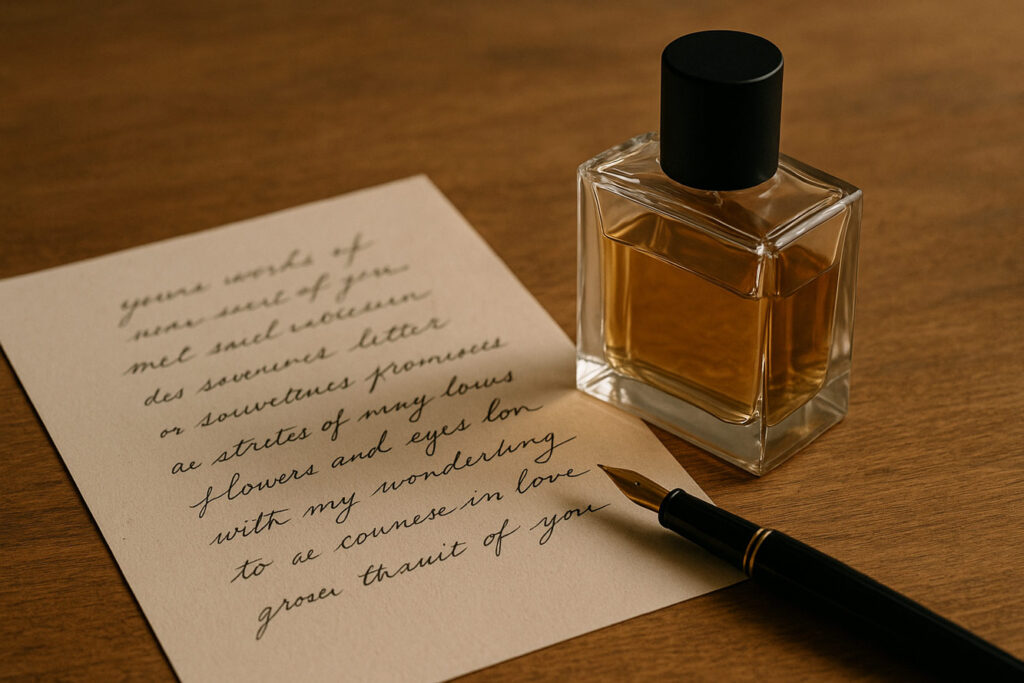 yours works of
near sert of you
met smel
des souvenirs letter
or souvetenes promises
ae stretes of my lows
flowers and eyes lon
with my wonderlung
to ae counese in love
groser thauit of you